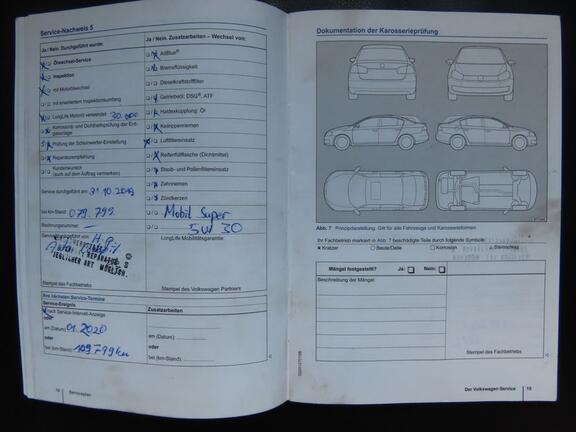 Service-Nachweis 5
Ja / Nein. Durchgeführt wurde:
Ölwechsel-Service
Inspektion
mit Motorölwechsel
mit erweitertem Inspektionsumfang
LongLife Motoröl verwendet 30.000
Korrosions- und Dichtheitsprüfung der Erdgasanlage
Prüfung der Scheinwerfer-Einstellung
Reparaturempfehlung
Kundenwunsch
(auch auf dem Auftrag vermerken)
Service durchgeführt am: 31.10.2019
bei km-Stand: 079.799
Rechnungsnummer: —
Service durchgeführt von:
REPARATUR
JEGLICHER ART MÖGLICH.
Stempel des Fachbetriebs
Ja / Nein. Zusatzarbeiten – Wechsel von:
AdBlue®
Bremsflüssigkeit
Dieselkraftstofffilter
Getriebeöl: DSG®, ATF
Haldexkupplung: Öl
Keilrippenriemen
Luftfiltereinsatz
Reifenfüllflasche (Dichtmittel)
Staub- und Pollenfiltereinsatz
Zahnriemen
Zündkerzen
Mobil Super
5W30
LongLife Mobilitätsgarantie:
Stempel des Volkswagen Partners
Ihre nächsten Service-Termine
Service-Ereignis
nach Service-Intervall-Anzeige
oder
am (Datum): 01.2020
oder
bei (km-Stand): 109.799km
Zusatzarbeiten
am (Datum):
oder
bei (km-Stand):
Serviceplan
Dokumentation der Karosserieprüfung
Abb. 7 Prinzipdarstellung. Gilt für alle Fahrzeuge und Karosserieformen.
Ihr Fachbetrieb markiert in Abb. 7 beschädigte Teile durch folgende Symbole:
× Kratzer ○ Beule/Delle □ Korrosion △ Steinschlag
Mängel festgestellt? Ja: Nein:
Beschreibung der Mängel:
Stempel des Fachbetriebs
Der Volkswagen Service 15